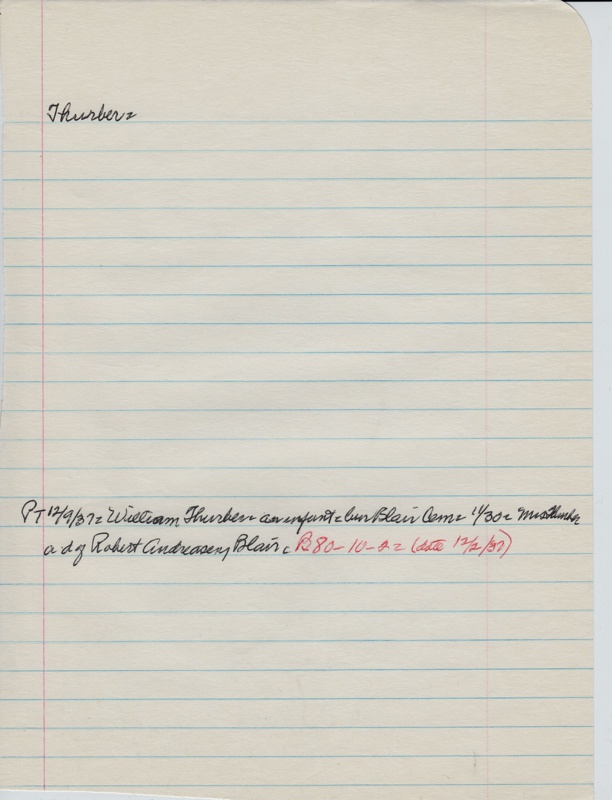 Thurber=
PT 12/9/37= William Thurber= an infant= bur Blair Cem= 11/30= Mrs Thurber
a d of Robert Andreasen, Blair= B80-10-2= (date 12/2/37)